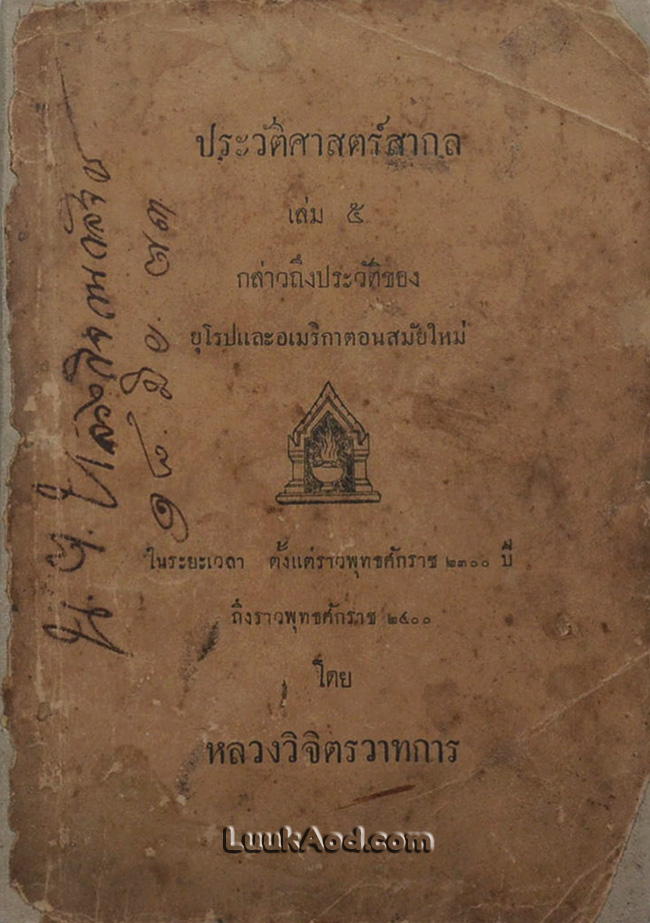 ประวัติศาสตร์สากล
เล่ม ๕
กล่าวถึงประวัติของ
ยุโรปและอเมริกาตอนสมัยใหม่
ในระยะเวลา ตั้งแต่ราวพุทธศักราช ๒๓๐๐ ปี
ถึงราวพุทธศักราช ๒๔๐๐
โดย
หลวงวิจิตรวาทการ
LuukAod.com